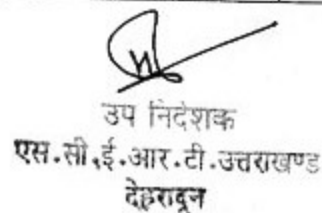 उप निदेशक
एस.सी.ई.आर.टी.उत्तराखण्ड
देहरादून